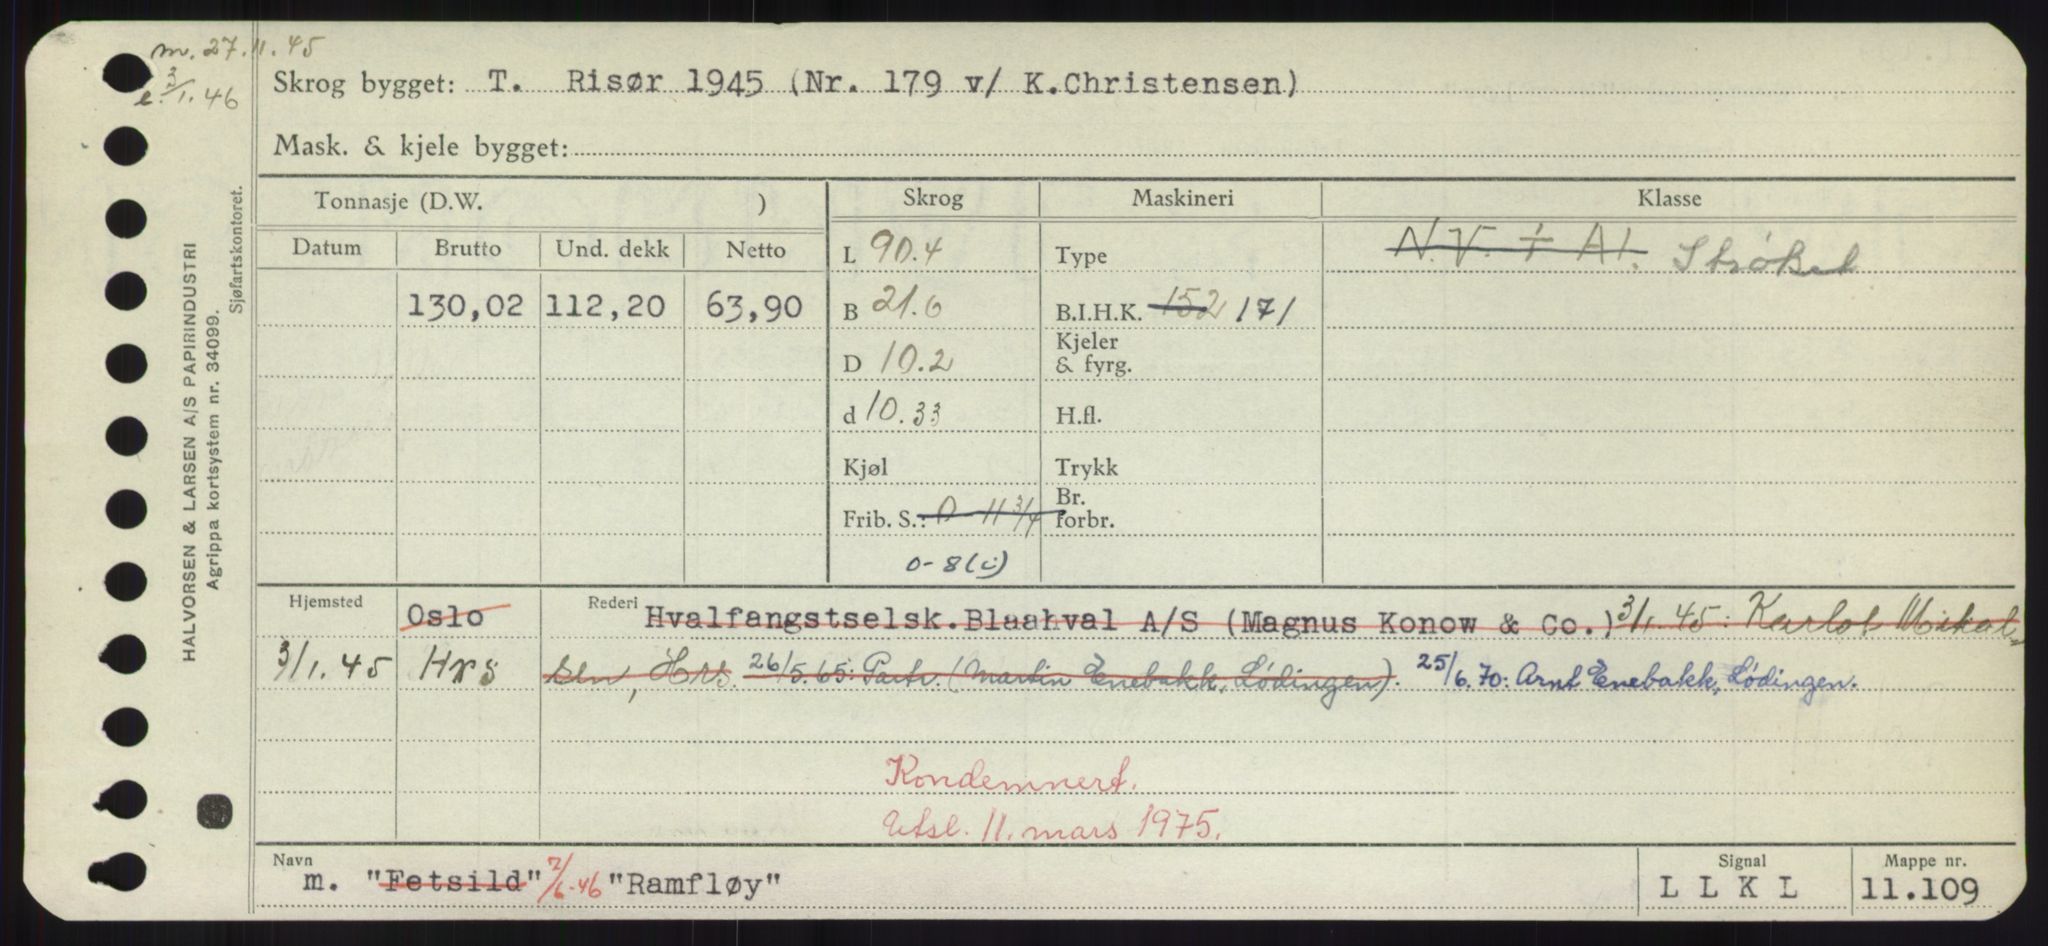 m. 27.11.45
e. 3/1.46
Skrog bygget: T. Risør 1945 (Nr. 179 v/ K.Christensen)
Mask. & kjele bygget:
HALVORSEN & LARSEN A/S PAPIRINDUSTRI
Agrippa kortsystem nr. 34099.
Sjøfartskontoret.
Tonnasje (D.W. ) Skrog Maskineri Klasse
Datum Brutto Und. dekk Netto L 90.4 Type N.V. + A1. Strøket
130,02 112,20 63,90 B 21.6 B.I.H.K. 152 171
D 10.2 Kjeler & fyrg.
d 10.33 H.fl.
Kjøl Trykk
Frib. S.: 0-11 3/4 Br. forbr.
0-8 (i)
Hjemsted Oslo Rederi Hvalfangstselsk.Blaahval A/S (Magnus Konow & Co.) 3/1.45: Karlot Mikal-
3/1.45 Hrs sen, Hrs. 26/5.65: Partr. (Martin Enebakk, Lødingen). 25/6.70: Arnt Enebakk, Lødingen.
Kondemnert.
Utsl. 11. mars 1975.
Navn Signal Mappe nr.
m. "Fetsild" 7/6-46 "Ramfløy" L L K L 11.109